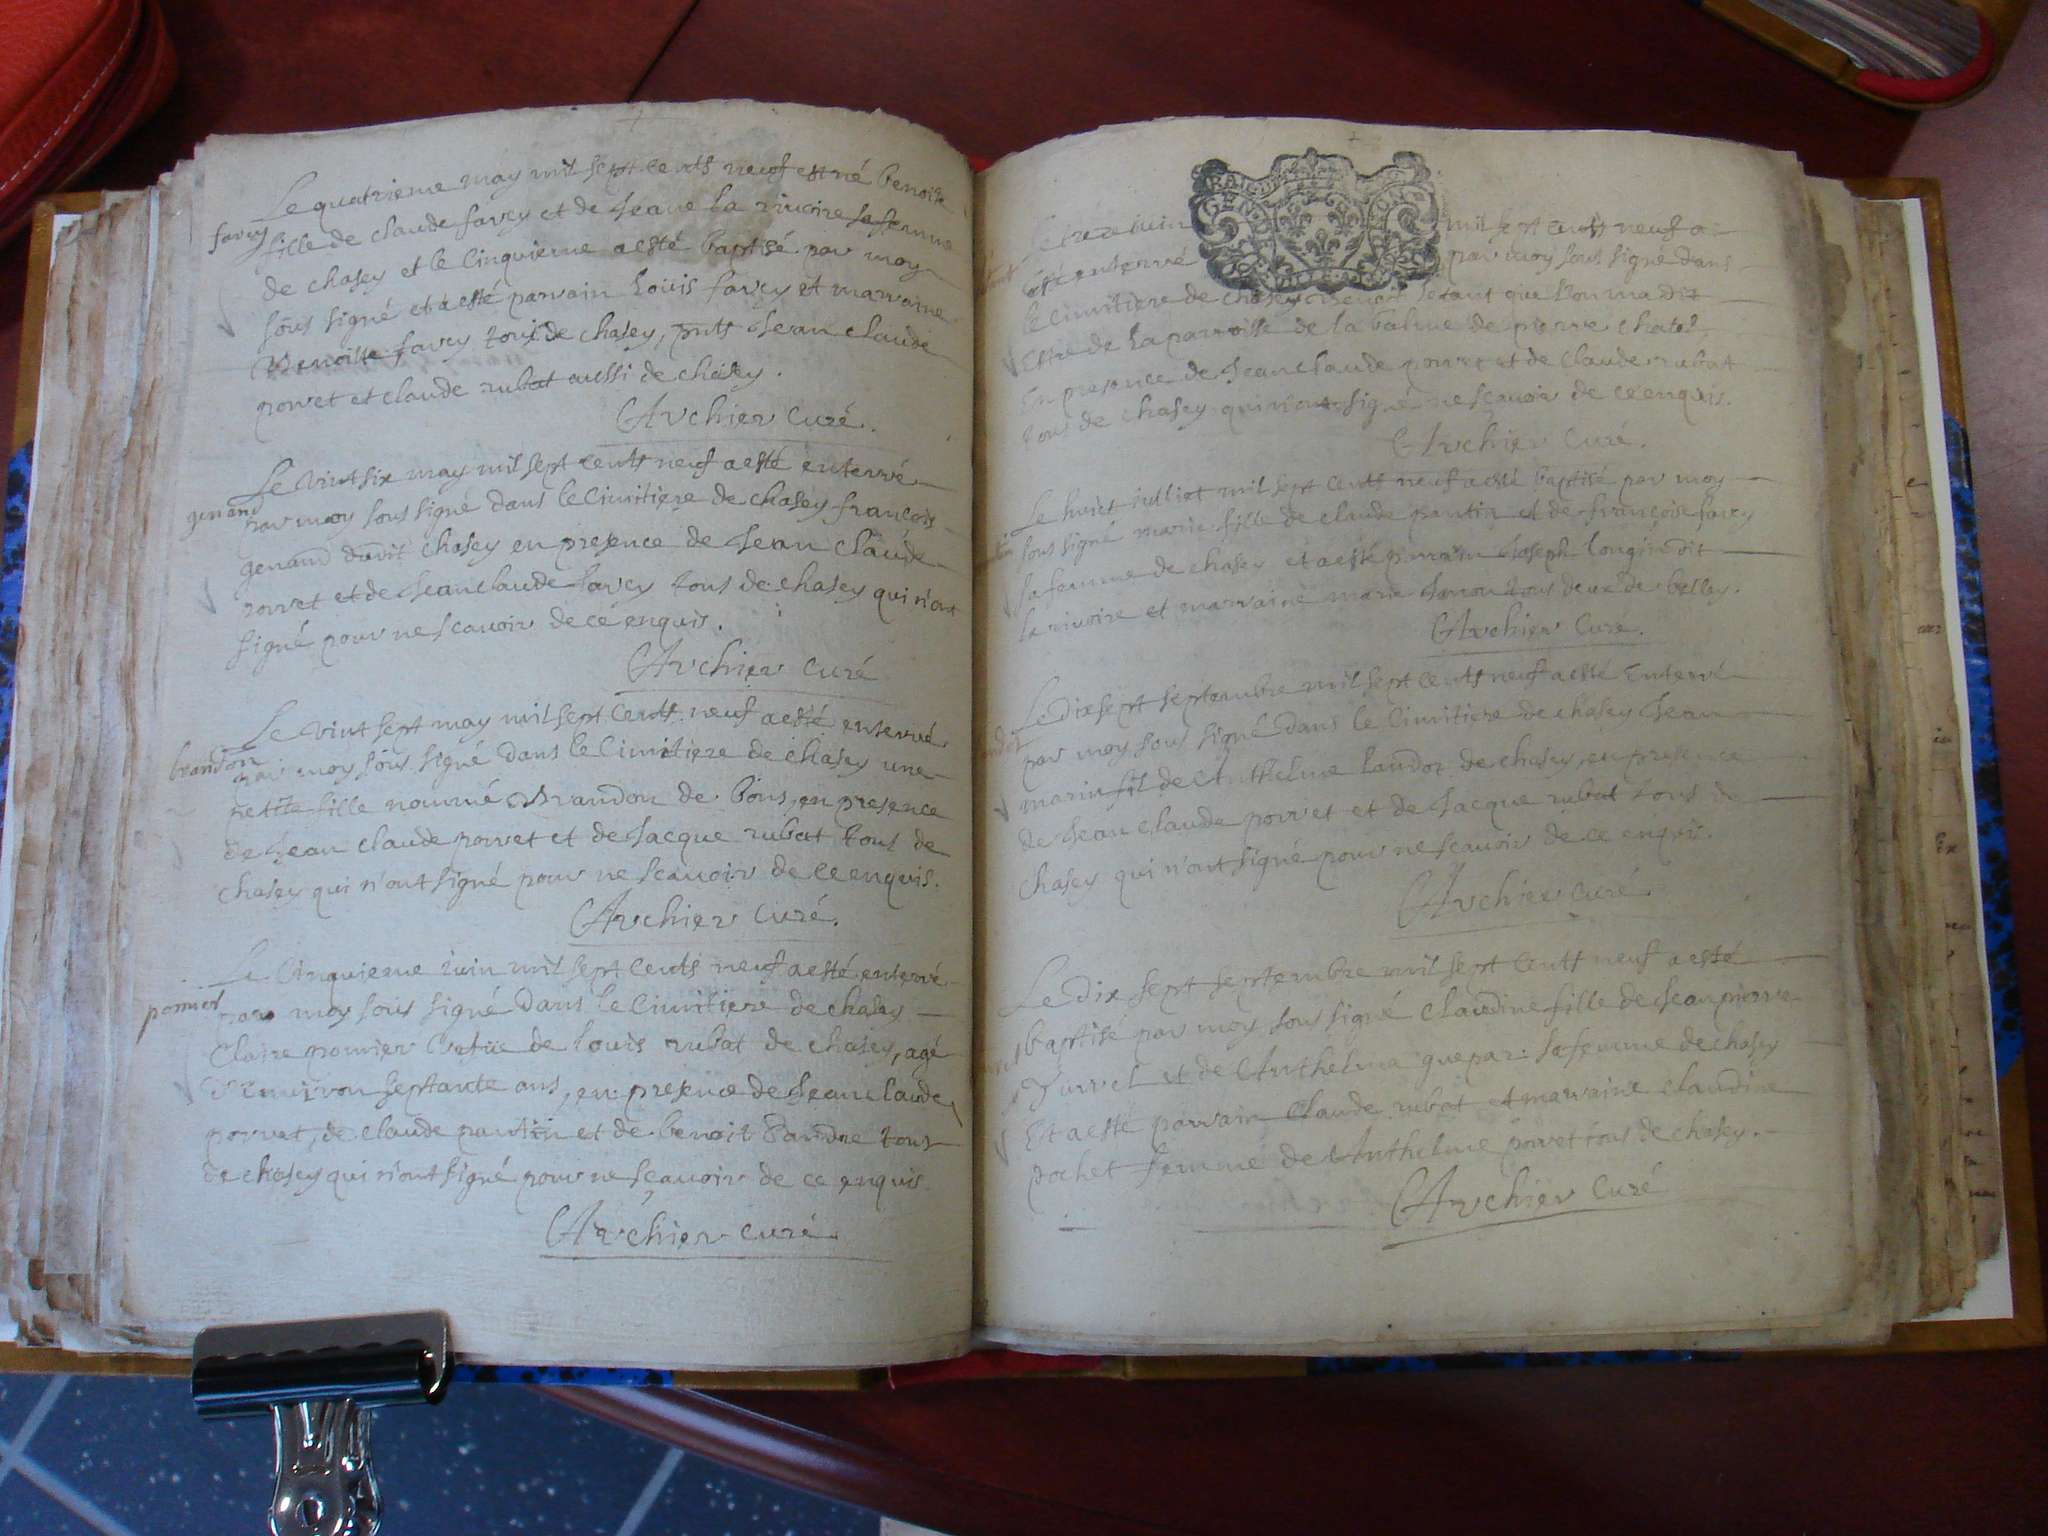 Le quatrieme may mil sept cents neuf est né benoite
favey
fille de claude favey et de Jeane la rivoire sa femme
de chasey et le cinquieme a esté baptisé par moy
sous signé et a esté parrain Louis favey et marraine
Benoitte favey tous de chasey, pnts Jean claude
porret et claude rubat aussi de chasey.
Archier curé.
Le vint six may mil sept cents neuf a esté enterré
genand
par moy sous signé dans le cimitiere de chasey françois
genand dudit chasey en presence de Jean claude
porret et de Jean claude favey tous de chasey qui n'ont
signé pour ne scavoir de ce enquis.
Archier curé
Le vint sept may mil sept cents neuf a esté enterré
brandon
par moy sous signé dans le cimitiere de chasey une
petite fille nommé Brandon de bons, en presence
de Jean claude porret et de Jacque rubat tous de
chasey qui n'ont signé pour ne scavoir de ce enquis.
Archier curé.
Le cinquieme iuin mil sept cents neuf a esté enterré
pomier
par moy sous signé dans le cimitiere de chasey
Claire pomier de Louis rubat de chasey, agé
d'environ septante ans, en presence de Jean claude
porret, de claude pantin et de benoit tous
de chasey qui n'ont signé pour ne sçavoir de ce enquis.
Archier curé.
iuin mil sept cents neuf a
esté enterré par moy sous signé dans
le cimitiere de chasey que l'on m'a dit
estre de la parroisse de la balme de pierre chatel
En presence de Jean claude porret et de claude rubat
tous de chasey qui n'ont signé ne sçavoir de ce enquis.
Archier curé.
Le huict iulliet mil sept cents neuf a esté baptisé par moy
sous signé marie fille de claude pantin et de françoise favey
sa femme de chasey et a esté parrain Joseph longin dit
la rivoire et marraine marie tous deux de belley.
Archier curé.
Le dix sept septembre mil sept cents neuf a esté enterré
par moy sous signé dans le cimitiere de chasey Jean
marin fil de Anthelme de chasey, en presence
de Jean claude porret et de Jacque rubat tous de
chasey qui n'ont signé pour ne scavoir de ce enquis.
Archier curé.
Le dix sept septembre mil sept cents neuf a esté
baptisé par moy sous signé claudine fille de Jean pierre
et de Anthelma guepar sa femme de chasey
Et a esté parrain Claude rubat et marraine claudine
pochet femme de Anthelme porret tous de chasey.
Archier curé